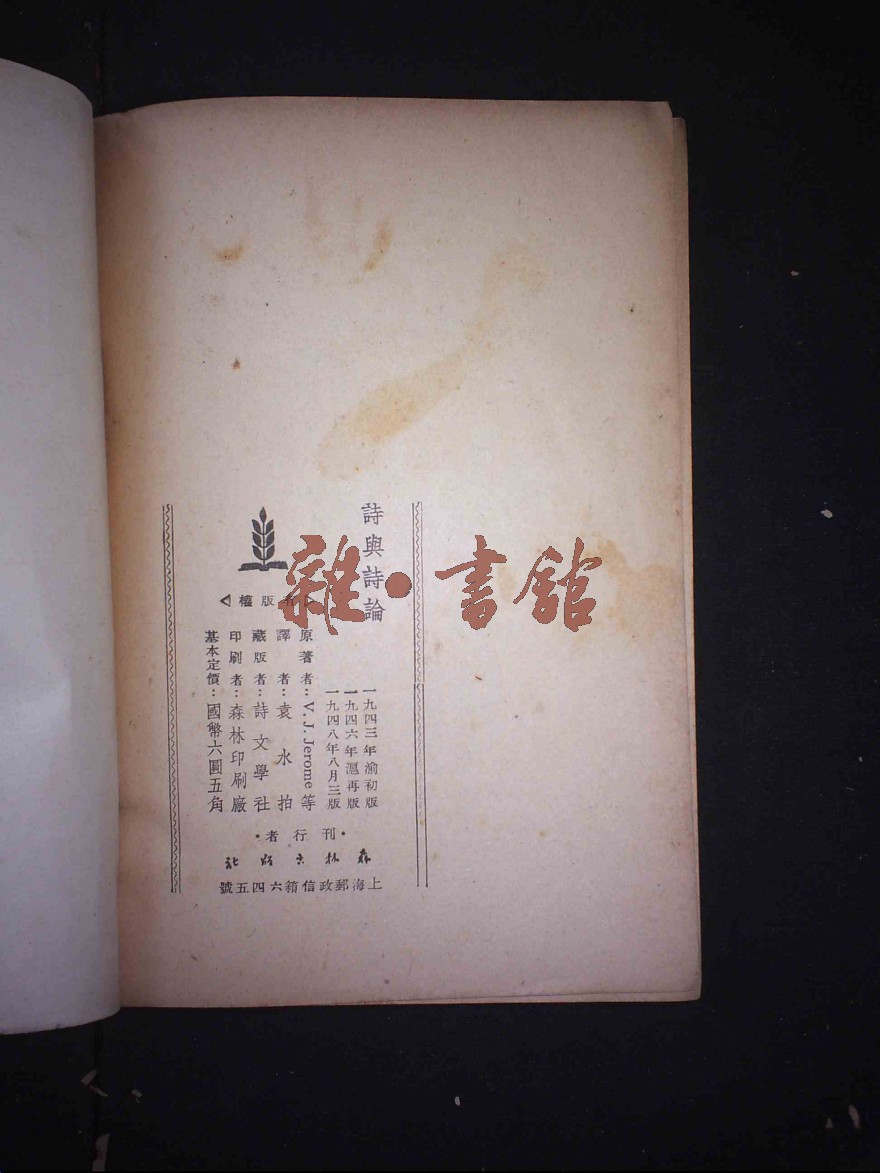 詩與詩論
一九四三年渝初版
一九四六年滬再版
一九四八年八月三版
原著者：V. J. Jerome等
譯者：袁水拍
藏版者：詩文學社
印刷者：森林印刷廠
基本定價：國幣六圓五角
版權
·刊行者·
森林出版社
上海郵政信箱六四五號
雜·書館